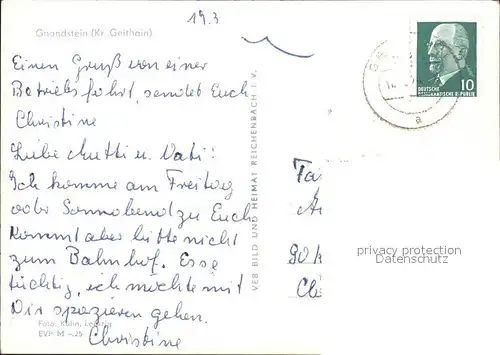 Gnandstein (Kr. Geithain)
19.3
Einen Gruß von einer
Betriebsfahrt, sendet Euch
Christine
Liebe Mutti u. Vati!
Ich komme am Freitag
oder Sonnabend zu Euch
Kommt aber bitte nicht
zum Bahnhof. Esse
tüchtig, ich möchte mit
Dir spazieren gehen.
Christine
Foto: Kühn, Leipzig
EVP M -.25
VEB BILD UND HEIMAT REICHENBACH I. V.
DEUTSCHE
DEMOKRATISCHE REPUBLIK
10
a
90
privacy protection
Datenschutz